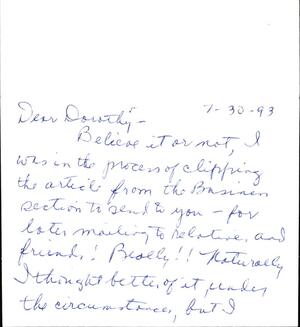 Dear Dorothy - 7-30-93
Believe it or not, I
was in the process of clipping
the article from the Business
section to send to you - for
later mailing to relatives and
friends! Really!! Naturally
I thought better of it, under
the circumstance, but I